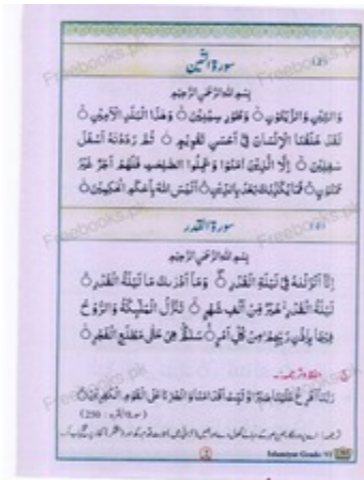 سورة التين
بِسْمِ اللهِ الرَّحْمٰنِ الرَّحِيْمِ
وَالتِّيْنِ وَالزَّيْتُوْنِ ۝ وَطُوْرِ سِيْنِيْنَ ۝ وَهٰذَا الْبَلَدِ الْاَمِيْنِ ۝
لَقَدْ خَلَقْنَا الْاِنْسَانَ فِيْ اَحْسَنِ تَقْوِيْمٍ ۝ ثُمَّ رَدَدْنٰهُ اَسْفَلَ
سٰفِلِيْنَ ۝ اِلَّا الَّذِيْنَ اٰمَنُوْا وَعَمِلُوا الصّٰلِحٰتِ فَلَهُمْ اَجْرٌ غَيْرُ
مَمْنُوْنٍ ۝ فَمَا يُكَذِّبُكَ بَعْدُ بِالدِّيْنِ ۝ اَلَيْسَ اللهُ بِاَحْكَمِ الْحٰكِمِيْنَ ۝
سورة القدر
بِسْمِ اللهِ الرَّحْمٰنِ الرَّحِيْمِ
اِنَّا اَنْزَلْنٰهُ فِيْ لَيْلَةِ الْقَدْرِ ۝ وَمَا اَدْرٰىكَ مَا لَيْلَةُ الْقَدْرِ ۝
لَيْلَةُ الْقَدْرِ خَيْرٌ مِّنْ اَلْفِ شَهْرٍ ۝ تَنَزَّلُ الْمَلٰٓئِكَةُ وَالرُّوْحُ
فِيْهَا بِاِذْنِ رَبِّهِمْ مِّنْ كُلِّ اَمْرٍ ۝ سَلٰمٌ هِيَ حَتّٰى مَطْلَعِ الْفَجْرِ ۝
رَبَّنَا اَفْرِغْ عَلَيْنَا صَبْرًا وَّثَبِّتْ اَقْدَامَنَا وَانْصُرْنَا عَلَى الْقَوْمِ الْكٰفِرِيْنَ ۝
(سورة البقرہ : 250)
Islamiyat Grade VI
Freebooks.pk